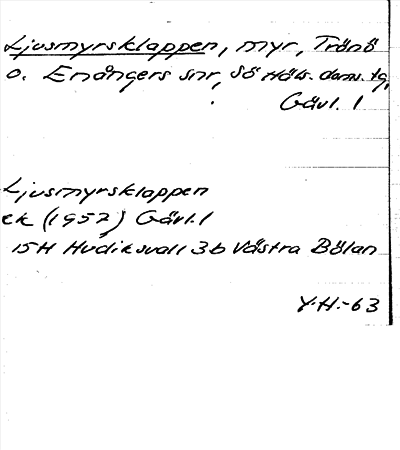 Ljusmyrsklappen, myr, Trönö
o. Enångers snr, Sö Häls. doms. tg,
Gävl. l
Ljusmyrsklappen
ek (1957) Gävl. l
15H Hudiksvall 3b Västra Bölan
Y.H.-63